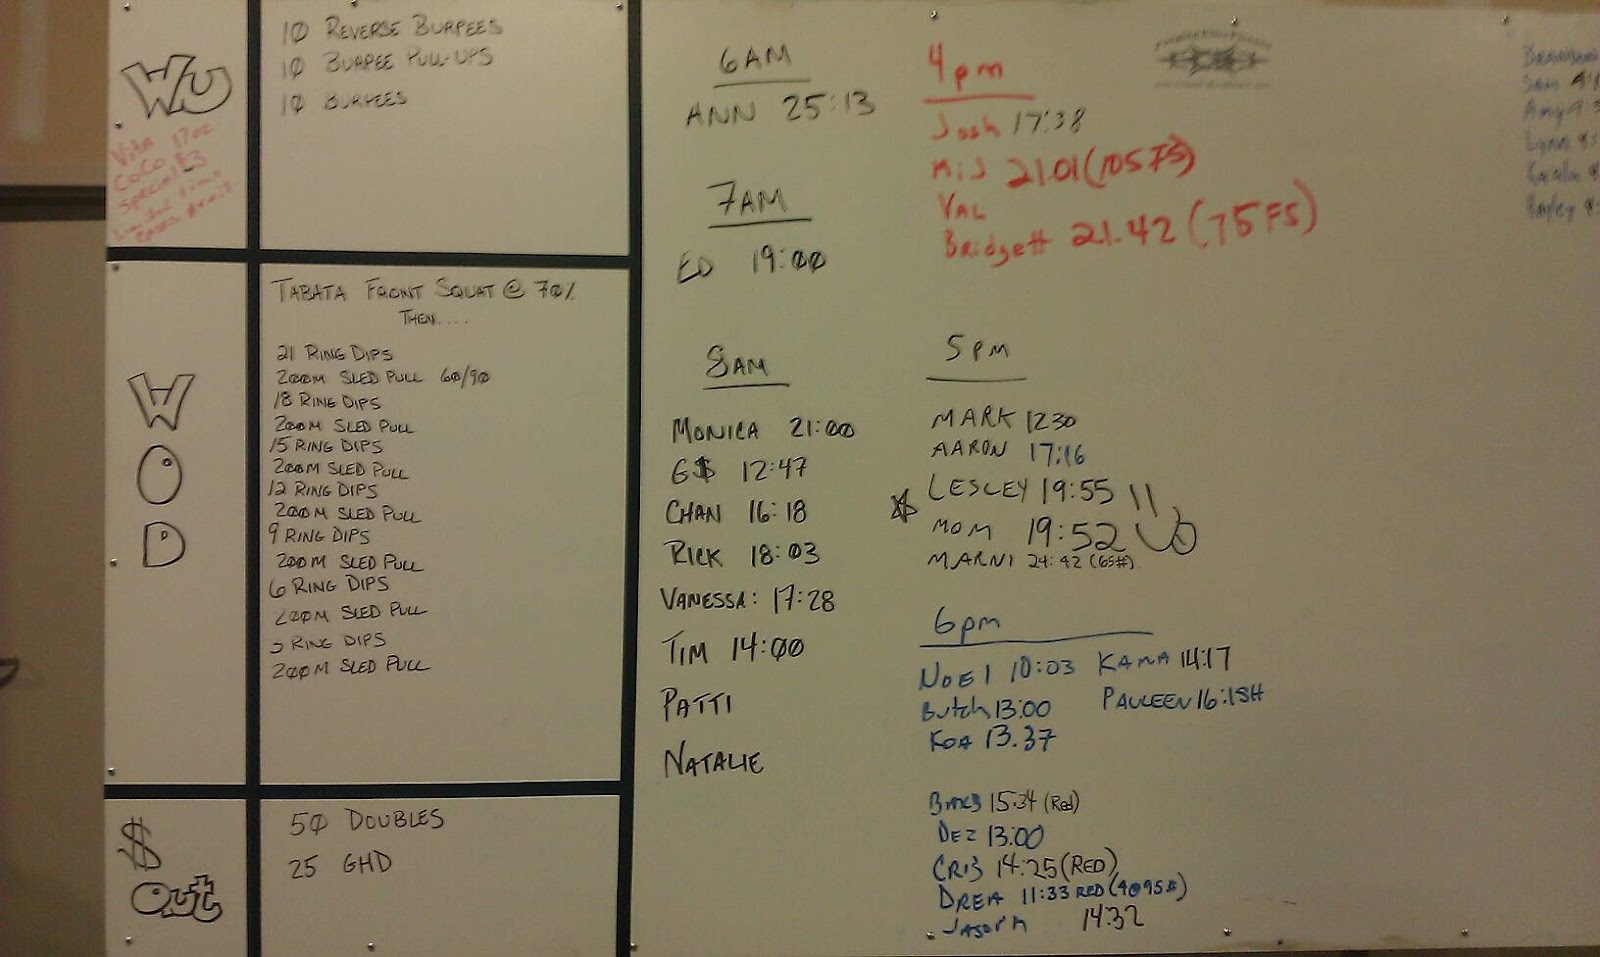 WU
10 REVERSE BURPEES
10 BURPEE PULL-UPS
10 BURPEES
Vita 17oz
CoCo
Special $3
WOD
TABATA FRONT SQUAT @ 70%
THEN....
21 RING DIPS
200M SLED PULL 60/90
18 RING DIPS
200M SLED PULL
15 RING DIPS
200M SLED PULL
12 RING DIPS
200M SLED PULL
9 RING DIPS
200M SLED PULL
6 RING DIPS
200M SLED PULL
RING DIPS
200M SLED PULL
$ Out
50 DOUBLES
25 GHD
6AM
ANN 25:13
7AM
ED 19:00
8AM
MONICA 21:00
G$ 12:47
CHAN 16:18
RICK 18:03
VANESSA: 17:28
TIM 14:00
PATTI
NATALIE
4pm
Josh 17:38
21.01 (105 FS)
VAL
Bridgett 21.42 (75 FS)
5pm
MARK 1230
AARON 17:16
LESLEY 19:55
MOM 19:52
MARNI 24:42 (65#)
6pm
NOEl 10:03 KAMA 14:17
Butch 13:00 PAULEEN 16:18
KOA 13.37
15:34 (Red)
DEZ 13:00
CRIS 14:25 (RED)
DREA 11:33 RED (4@95#)
14:32
Sam
Amy
Lynn
Hayley